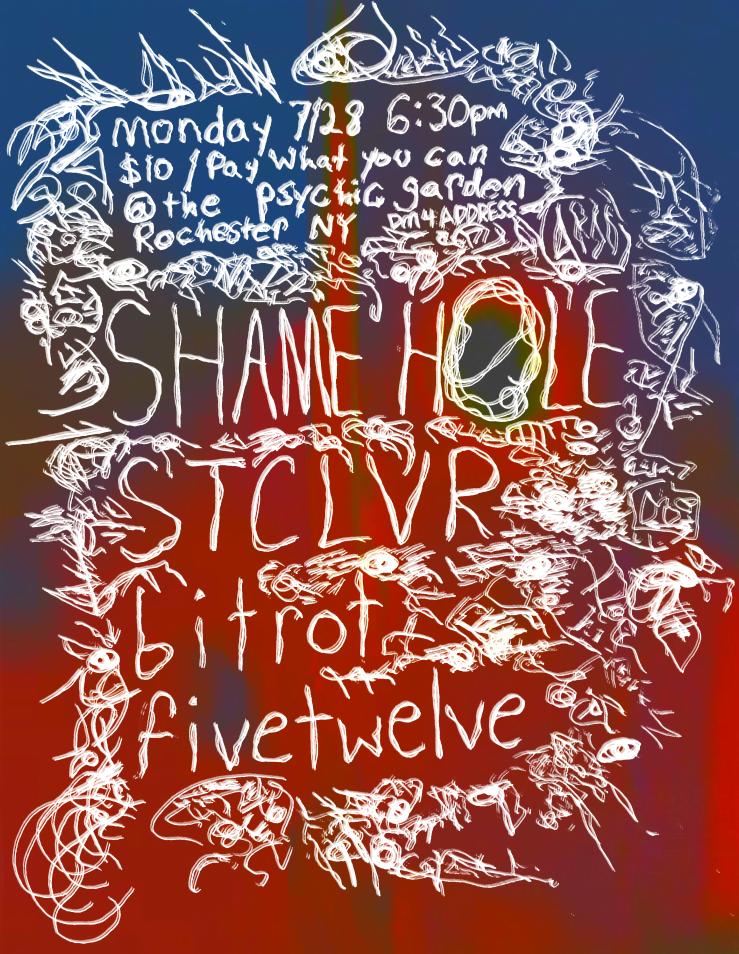 monday 7/28 6:30pm
$10 / Pay what you can
@ the psychic garden
Rochester NY dm 4 ADDRESS
SHAME HOLE
STCLVR
bitrot
fivetwelve